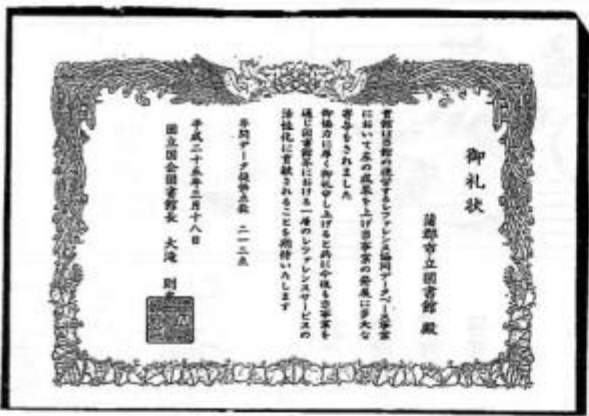 御礼状
蒲郡市立図書館 殿
貴館は当館の運営するレファレンス協同データベース事業
において左の成果を上げ当事業の発展に多大な
寄与をされました
御協力に厚く御礼申し上げると共に今後も当事業を
通じ図書館界における一層のレファレンスサービスの
活性化に貢献されることを期待いたします
年間データ提供点数 二一三点
平成二十五年三月十八日
国立国会図書館長 大滝 則